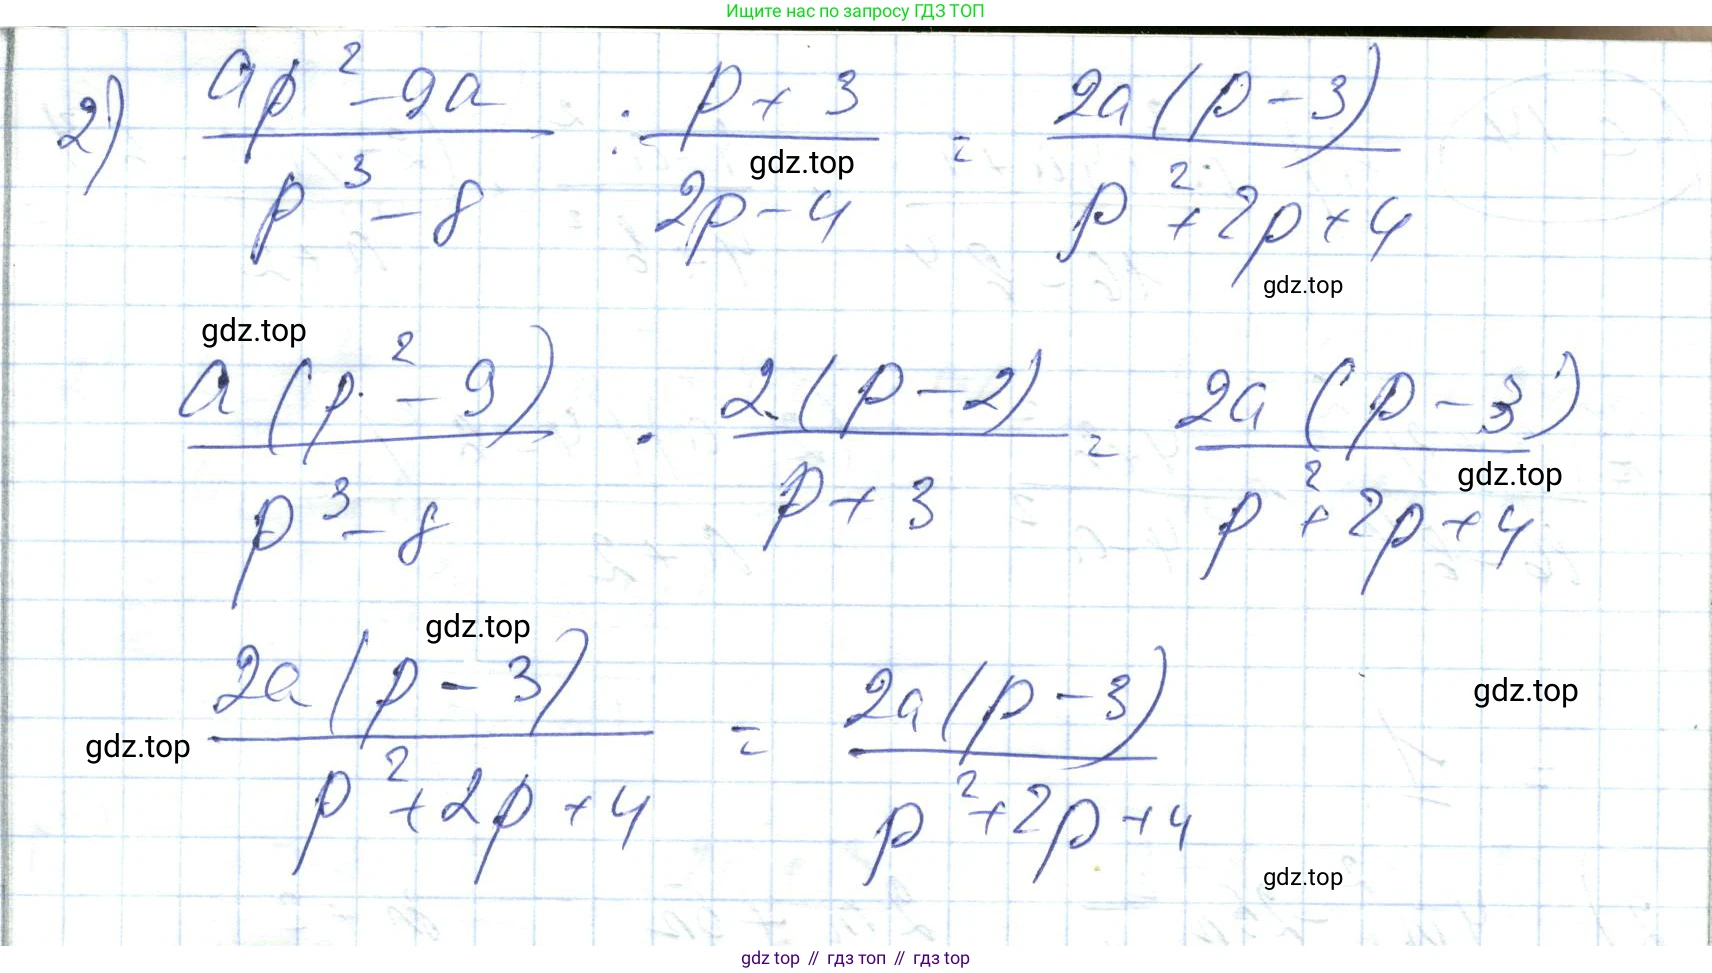 Ищите нас по запросу ГДЗ ТОП
2) (ap² - 9a)/(p³ - 8) : (p + 3)/(2p - 4) = (2a(p - 3))/(p² + 2p + 4)
gdz.top
gdz.top
gdz.top
(a(p² - 9))/(p³ - 8) · (2(p - 2))/(p + 3) = (2a(p - 3))/(p² + 2p + 4)
gdz.top
gdz.top
(2a(p - 3))/(p² + 2p + 4) = (2a(p - 3))/(p² + 2p + 4)
gdz.top
gdz.top
gdz.top
gdz top // гдз топ // gdz top